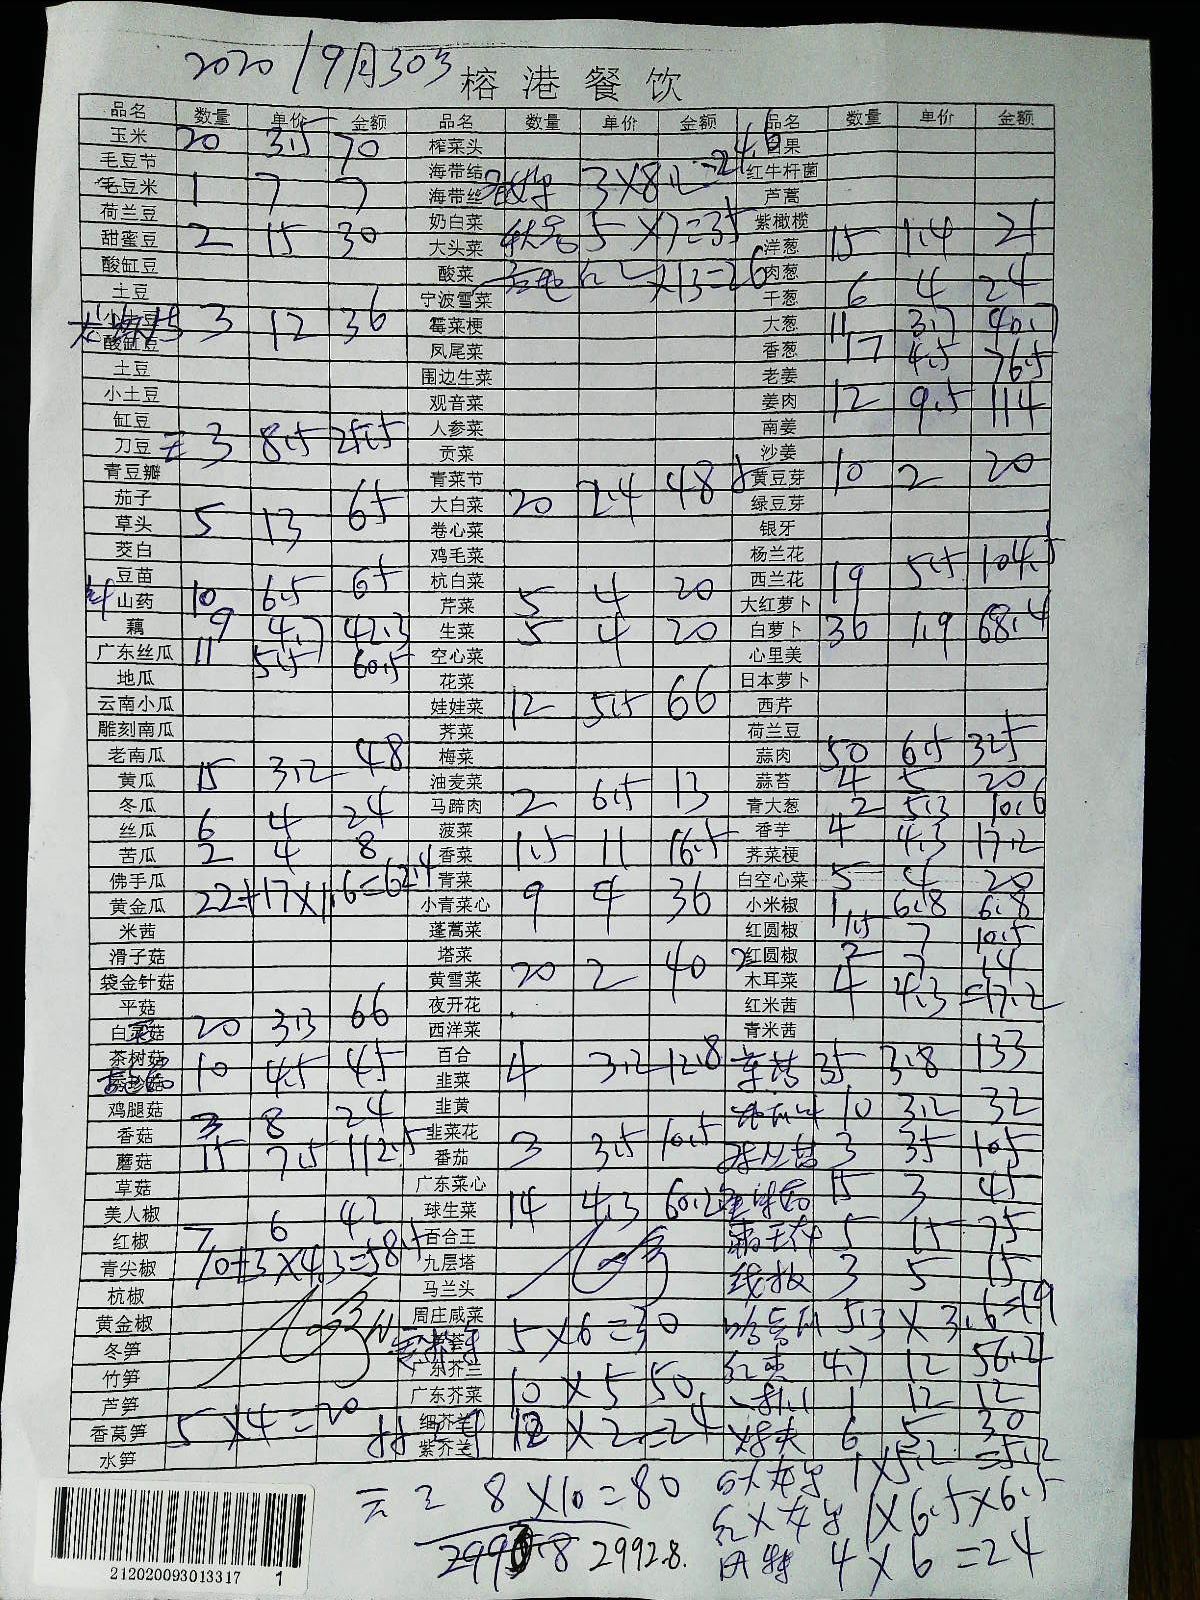 2020/9月30号
榕港餐饮
品名 数量 单价 金额 品名 数量 单价 金额 品名 数量 单价 金额
玉米 20 3.5 70 榨菜头 果
毛豆节 海带结 3×8.2=24.6 红牛杆菌
毛豆米 1 7 7 海带丝 芦蒿
荷兰豆 奶白菜 5×7=35 紫橄榄
甜蜜豆 2 15 30 大头菜 洋葱 15 1.4 21
酸缸豆 酸菜 2×13=26 肉葱
土豆 宁波雪菜 干葱 6 4 24
小土豆 3 12 36 霉菜梗 大葱 11 3.7 40.7
酸缸豆 凤尾菜 香葱 17 4.5 76.5
土豆 围边生菜 老姜
小土豆 观音菜 姜肉 12 9.5 114
缸豆 人参菜 南姜
刀豆 3 8.5 25.5 贡菜 沙姜
青豆瓣 青菜节 黄豆芽 10 2 20
茄子 大白菜 20 2.4 48 绿豆芽
草头 5 13 65 卷心菜 银牙
茭白 鸡毛菜 杨兰花
豆苗 杭白菜 西兰花 19 5.5 104.5
山药 10 6.5 65 芹菜 5 4 20 大红萝卜
藕 9 4.7 42.3 生菜 5 4 20 白萝卜 36 1.9 68.4
广东丝瓜 11 5.5 60.5 空心菜 心里美
地瓜 花菜 日本萝卜
云南小瓜 娃娃菜 12 5.5 66 西芹
雕刻南瓜 荠菜 荷兰豆
老南瓜 梅菜 蒜肉 50 6.5 325
黄瓜 15 3.2 48 油麦菜 蒜苔 4 5 20
冬瓜 马蹄肉 2 6.5 13 青大葱 2 5.3 10.6
丝瓜 6 4 24 菠菜 香芋 4 4.3 17.2
苦瓜 2 4 8 香菜 1.5 11 16.5 荠菜梗
佛手瓜 青菜 白空心菜 5 4 20
黄金瓜 22+17×1.6=62.4 小青菜心 9 4 36 小米椒 1 6.8 6.8
米茜 蓬蒿菜 红圆椒 1.5 7 10.5
滑子菇 塔菜 红圆椒 2 7 14
袋金针菇 黄雪菜 20 2 40 木耳菜 4 4.3 =17.2
平菇 夜开花 红米茜
白菇 20 3.3 66 西洋菜 青米茜
茶树菇 百合 草菇 35 3.8 133
10 4.5 45 韭菜 4 3.2 12.8
鸡腿菇 韭黄 10 3.2 32
香菇 3 8 24 韭菜花 3 35 105
蘑菇 15 7.5 112.5 番茄 3 3.5 10.5
草菇 广东菜心 15 3 45
美人椒 球生菜 14 4.3 60.2
红椒 7 6 42 百合王 5 15 75
青尖椒 10+3×4.3=58.5 九层塔 线椒 3 5 15
杭椒 马兰头
黄金椒 周庄咸菜 5.3×3.6=19
冬笋 5×6=30
竹笋 广东芥兰 红枣 4.7 12 56.4
芦笋 广东芥菜 10×5 50 1 12 12
香莴笋 5×4=20 细芥兰 12×2=24 6 5 30
水笋 紫芥兰 1×5.2=5.2
8×10=80 1×6.5×6.5
2992.8 4×6=24
212020093013317 1